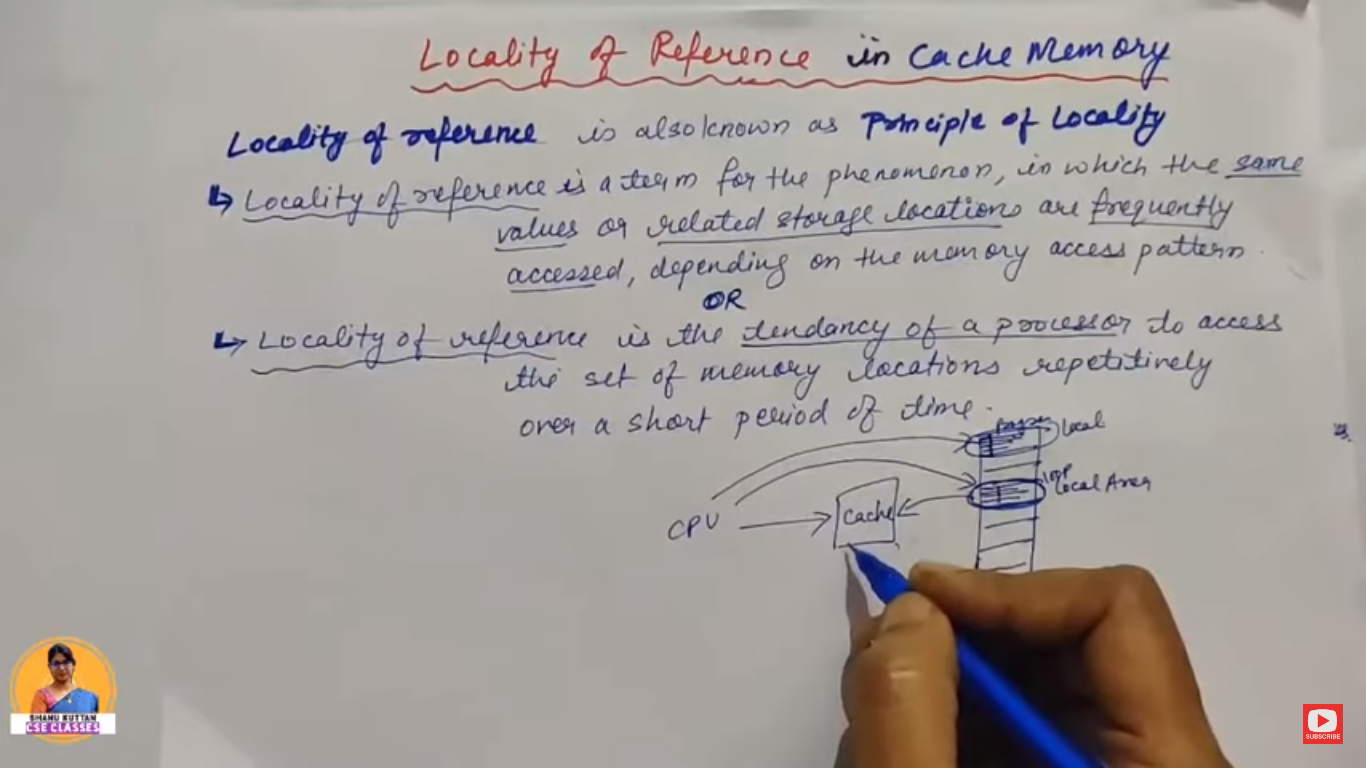 Locality of Reference in Cache Memory
Locality of reference is also known as Principle of Locality
↳ Locality of reference is a term for the phenomenon, in which the same
values or related storage locations are frequently
accessed, depending on the memory access pattern.
OR
↳ Locality of reference is the tendancy of a processor to access
the set of memory locations repetitively
over a short period of time.
Local
Local Area
CPU
Cache
SHANU KUTTAN
CSE CLASSES
SUBSCRIBE